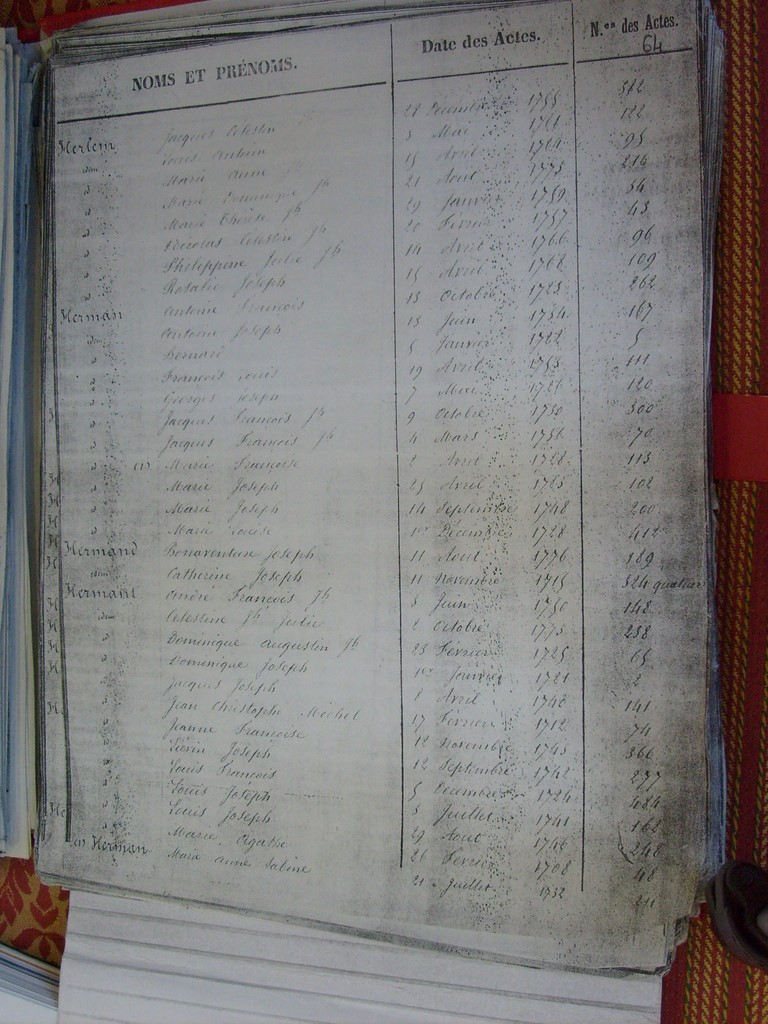 NOMS ET PRÉNOMS. Date des Actes. N.os des Actes.
64
Herlem Jacques Celestin 28 Décembre 1755 312
idem Louis Antoine 3 Mai 1761 122
d Marie Anne Jh 15 Avril 1764 95
d Marie Dominique Jh 21 Aout 1773 214
d Marie Thérèse Jh 29 Janvier 1759 34
d Nicolas Celestin Jh 20 Février 1757 43
d Philippine Julie Jh 14 Avril 1766 96
d Rosalie Joseph 15 Avril 1768 109
Herman Antoine François 13 Octobre 1723 262
d Antoine Joseph 13 Juin 1734 167
idem Bernard 5 Janvier 1722 5
d François Louis 19 Avril 1753 111
d Georges Joseph 7 Mai 1726 120
d Jacques François Jh 9 Octobre 1730 300
d Jacques François Jh 4 Mars 1736 70
d (1) Marie Françoise 2 Avril 1728 113
d Marie Joseph 23 Avril 1723 102
d Marie Joseph 14 Septembre 1748 200
d Marie Louise 1er Décembre 1728 412
Hermand Bonaventure Joseph 11 Aout 1776 189
idem Catherine Joseph 11 Novembre 1715 324 quatuor
Hermant André François Jh 3 Juin 1750 148
idem Celestine Jh Julie 2 Octobre 1773 238
d Dominique Augustin Jh 23 Février 1725 65
d Dominique Joseph 1er Janvier 1721 2
d Jacques Joseph 8 Avril 1742 141
d Jean Christophe Michel 17 Février 1712 74
d Jeanne Françoise 12 Novembre 1743 366
d Liévin Joseph 12 Septembre 1742 277
d Louis François 5 Décembre 1724 484
d Louis Joseph 3 Juillet 1741 162
d Louis Joseph 29 Aout 1746 248
d Marie Agathe 26 Février 1708 48
(1) Herman Marie Anne Sabine 21 Juillet 1732 211